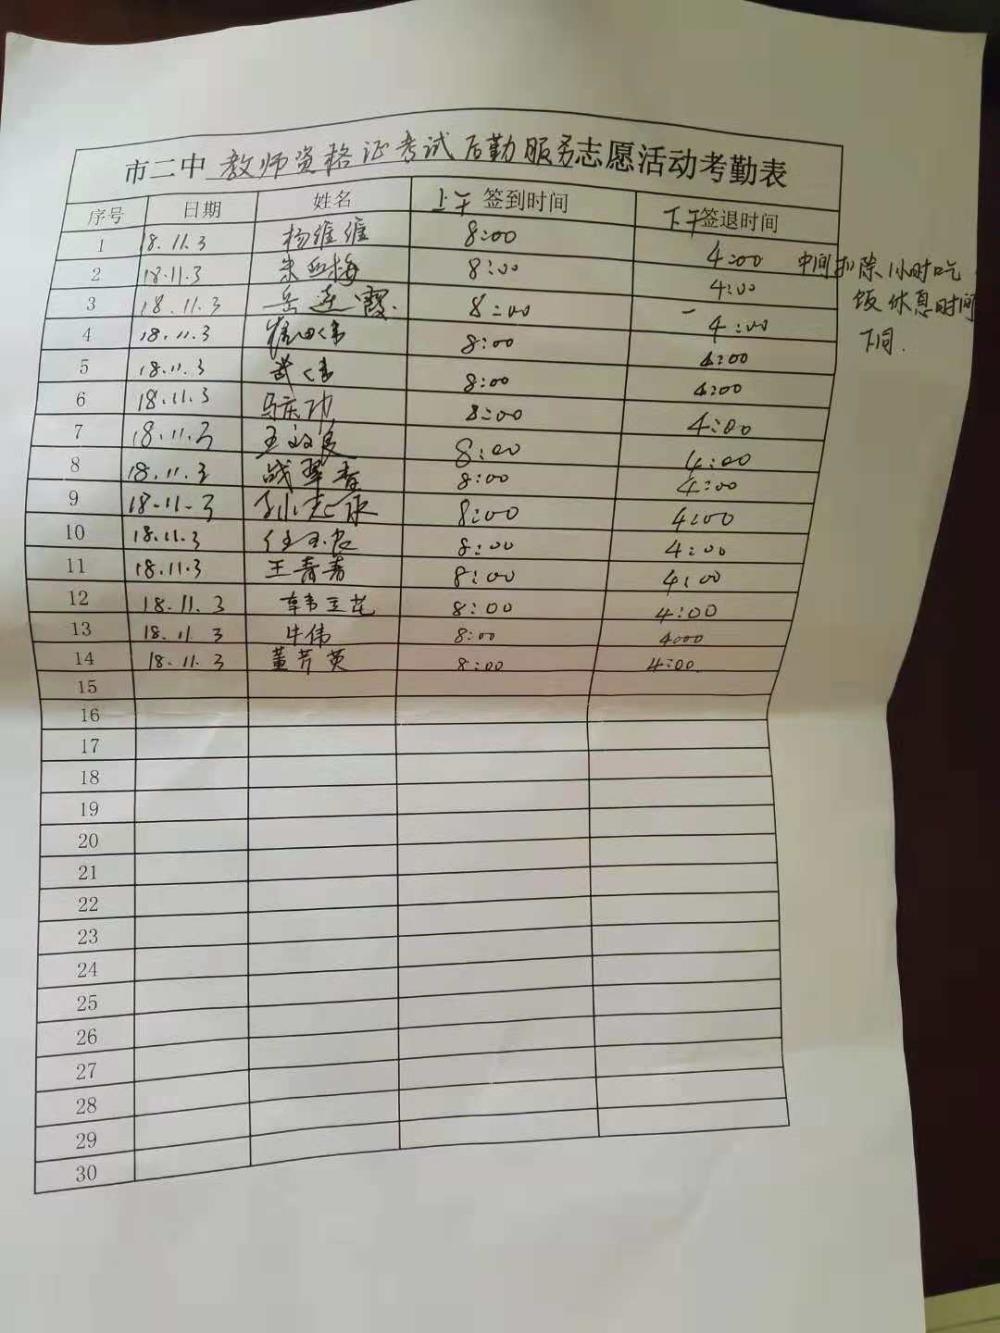 市二中 教师资格证考试后勤服务志愿活动考勤表
序号 日期 姓名 上午 签到时间 下午签退时间
1 18.11.3 杨维维 8:00 4:00 中间扣除1小时吃
2 18.11.3 8:00 4:00 饭休息时间
3 18.11.3 岳莲霞. 8:00 4:00 下同.
4 18.11.3 8:00 4:00
5 18.11.3 武伟 8:00 4:00
6 18.11.3 马庆功 8:00 4:00
7 18.11.3 8:00 4:00
8 18.11.3 战翠香 8:00 4:00
9 18.11.3 8:00 4:00
10 18.11.3 8:00 4:00
11 18.11.3 王青青 8:00 4:00
12 18.11.3 8:00 4:00
13 18.11.3 牛伟 8:00 4:00
14 18.11.3 董芹英 8:00 4:00
15
16
17
18
19
20
21
22
23
24
25
26
27
28
29
30